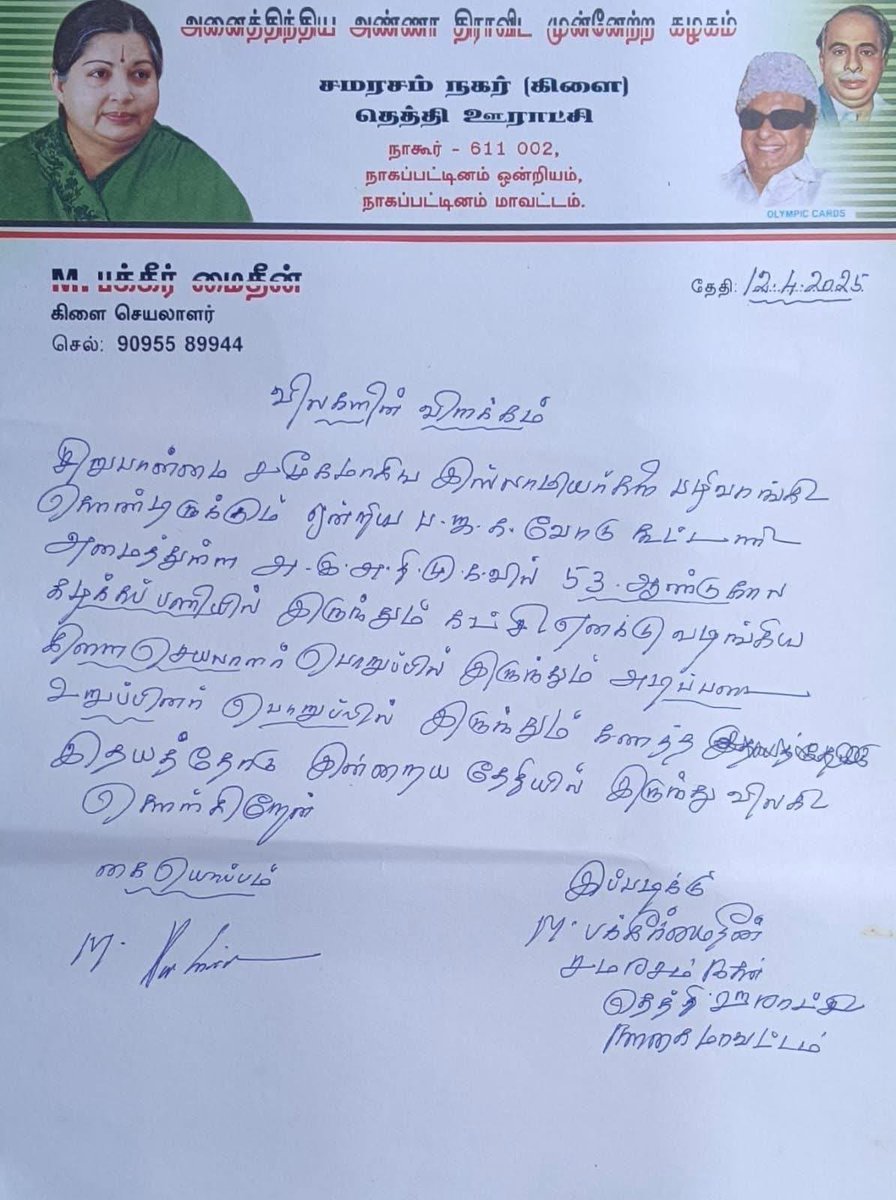 அனைத்திந்திய அண்ணா திராவிட முன்னேற்ற கழகம்
சமரசம் நகர் (கிளை)
தெத்தி ஊராட்சி
நாகூர் - 611 002,
நாகப்பட்டினம் ஒன்றியம்,
நாகப்பட்டினம் மாவட்டம்.
OLYMPIC CARDS
M. பக்கீர் மைதீன்
தேதி: 12.4.2025
கிளை செயலாளர்
செல்: 90955 89944
விலகளின் விளக்கம்
சிறுபான்மை சமூகமாகிய இஸ்லாமியர்களை பழிவாங்கி
கொண்டிருக்கும் ஒன்றிய ப.ஜ.க. வோடு கூட்டணி
அமைத்துள்ள அ.இ.அ.தி.மு.க வில் 53 ஆண்டுகால
கழகப் பணியில் இருந்தும் கட்சி எனக்கு வழங்கிய
கிளை செயலாளர் பொறுப்பில் இருந்தும் அடிப்படை
உறுப்பினர் பொறுப்பில் இருந்தும் கனத்த
இதயத்தோடு இன்றைய தேதியில் இருந்து விலகி
கொள்கிறேன்
கையொப்பம்
இப்படிக்கு
M.
M. பக்கீர்மைதீன்
சமரசம் நகர்
தெத்தி ஊராட்சி
நாகை மாவட்டம்